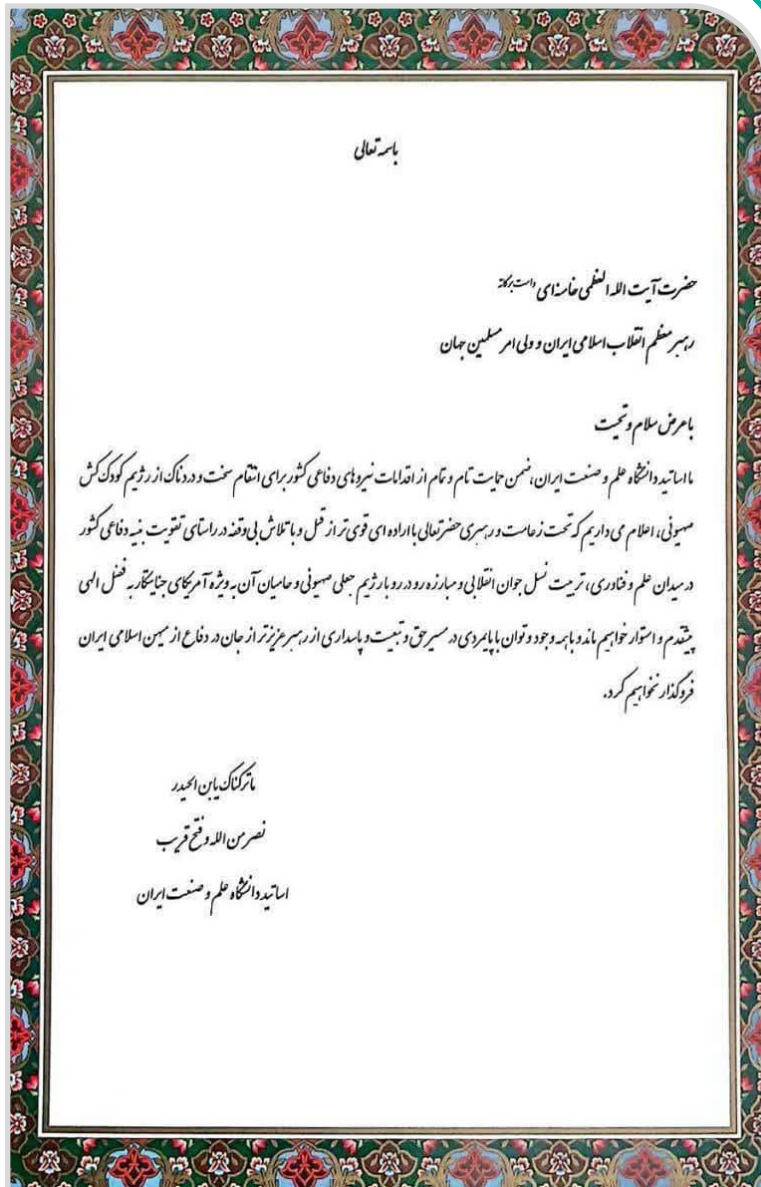 باسمه تعالی
حضرت آیت الله العظمی خامنه‌ای دامت برکاته
رهبر معظم انقلاب اسلامی ایران و ولی امر مسلمین جهان
با عرض سلام و تحیت
ما اساتید دانشگاه علم و صنعت ایران، ضمن حمایت تام و تمام از اقدامات نیروهای دفاعی کشور برای انتقام سخت و دردناک از رژیم کودک کش
صهیونی، اعلام می داریم که تحت زعامت و رهبری حضرتعالی با اراده ای قوی تر از قبل و با تلاش بی وقفه در راستای تقویت بنیه دفاعی کشور
در میدان علم و فناوری، تربیت نسل جوان انقلابی و مبارزه رو در رو با رژیم جعلی صهیونی و حامیان آن به ویژه آمریکای جنایتکار به فضل الهی
پیشقدم و استوار خواهیم ماند و با همه وجود و توان با پایمردی در مسیر حق و تبعیت و پاسداری از رهبر عزیزتر از جان در دفاع از میهن اسلامی ایران
فروگذار نخواهیم کرد.
ماترکناک یابن الحیدر
نصر من الله و فتح قریب
اساتید دانشگاه علم و صنعت ایران